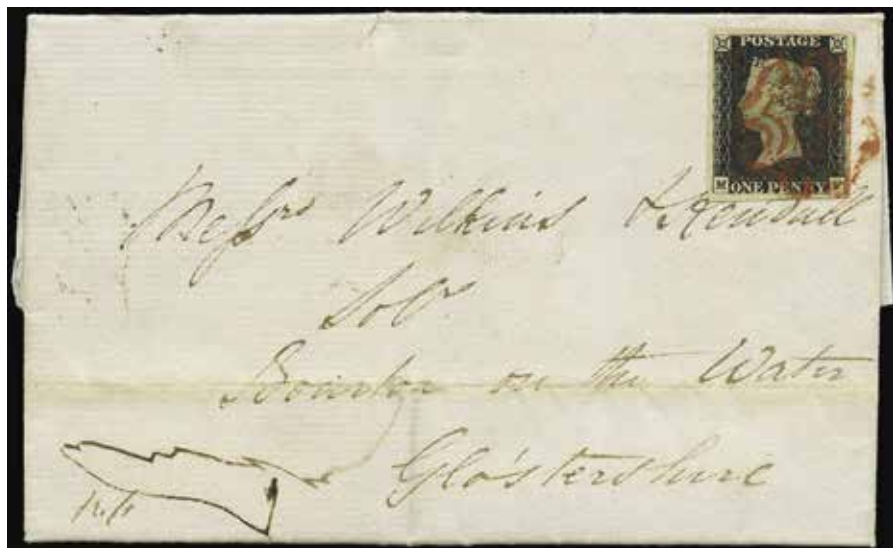 POSTAGE
ONE PENNY
Messrs Wilkins & Kendall
Solrs
Bourton on the Water
Glo'stershire